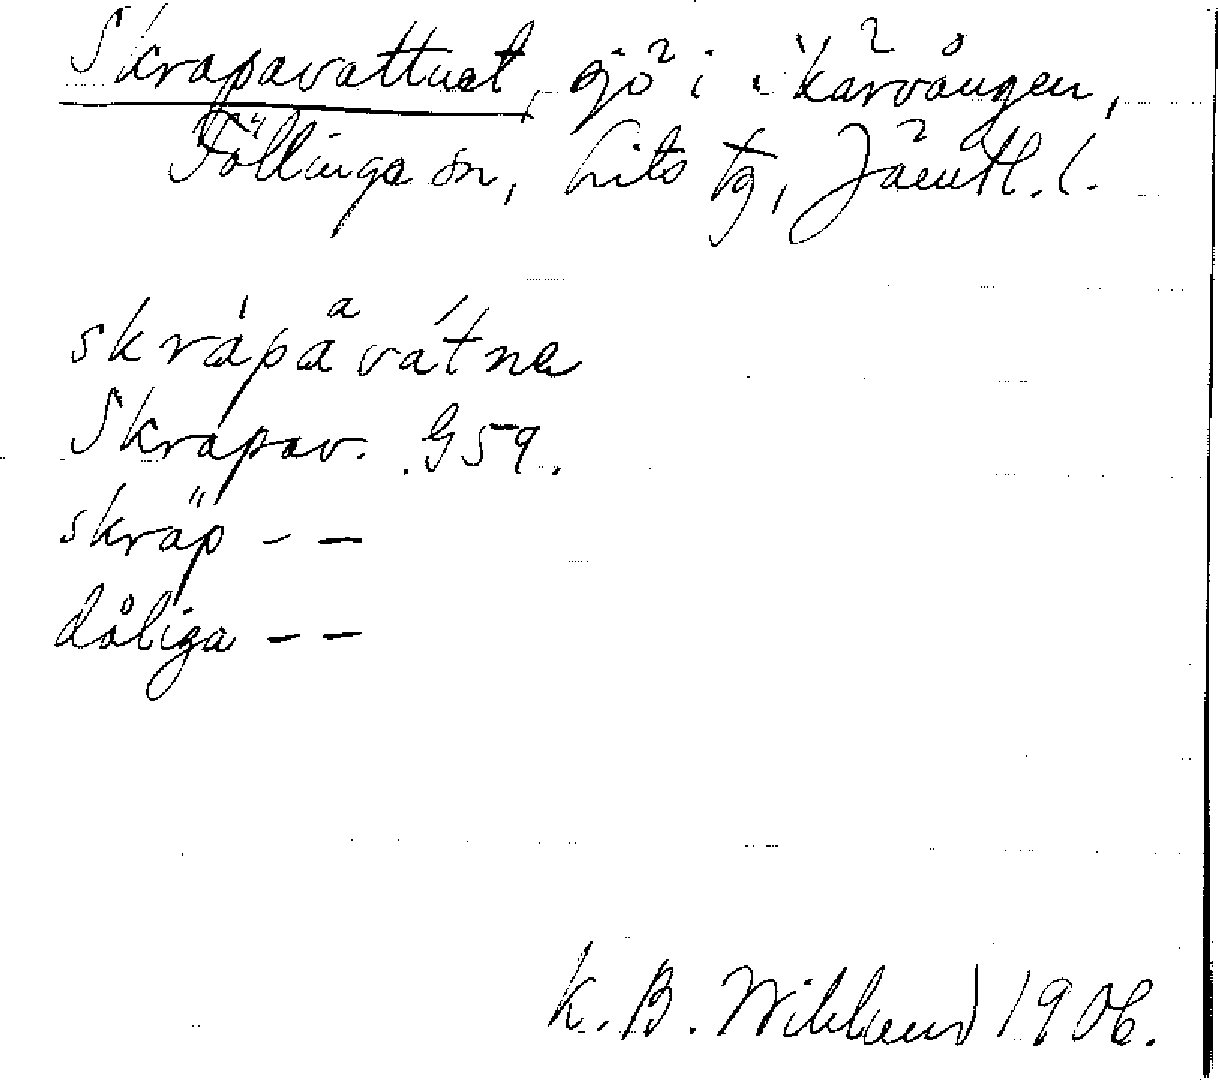 Skrapavattnet, sjö i Kärvången,
Föllinge sn, Lits tg, Jämtl. l.
skràpa͒vátna
Skrapav. G59.
skräp - -
dåliga - -
K. B. Wiklund 1906.